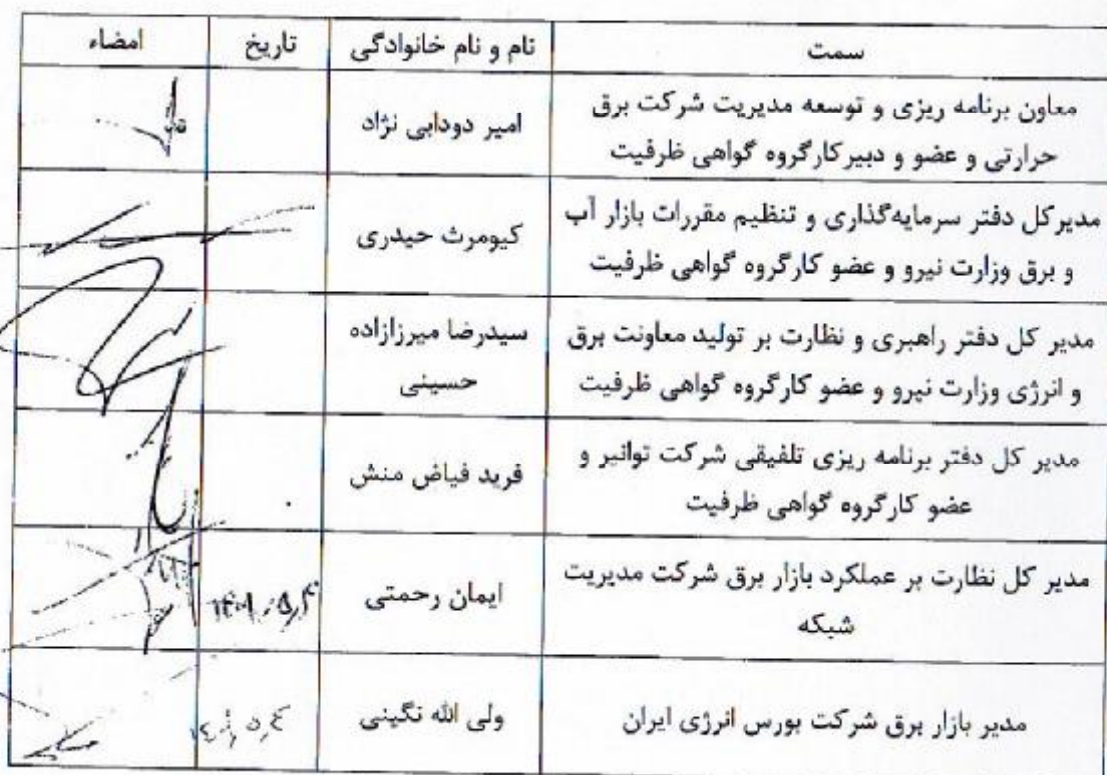 سمت نام و نام خانوادگی تاریخ امضاء
معاون برنامه ریزی و توسعه مدیریت شرکت برق
حرارتی و عضو و دبیرکارگروه گواهی ظرفیت
امیر دودابی نژاد
مدیرکل دفتر سرمایه‌گذاری و تنظیم مقررات بازار آب
و برق وزارت نیرو و عضو کارگروه گواهی ظرفیت
کیومرث حیدری
مدیر کل دفتر راهبری و نظارت بر تولید معاونت برق
و انرژی وزارت نیرو و عضو کارگروه گواهی ظرفیت
سیدرضا میرزازاده
حسینی
مدیر کل دفتر برنامه ریزی تلفیقی شرکت توانیر و
عضو کارگروه گواهی ظرفیت
فرید فیاض منش
مدیر کل نظارت بر عملکرد بازار برق شرکت مدیریت
شبکه
ایمان رحمتی
مدیر بازار برق شرکت بورس انرژی ایران
ولی الله نگینی